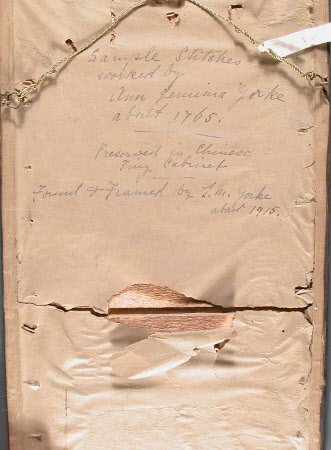 Sample Stitches
worked by
Ann Jemima Yorke
about 1765.
Preserved in Chinese
Tiny Cabinet
Found & Framed by L.M. Yorke
about 1915.